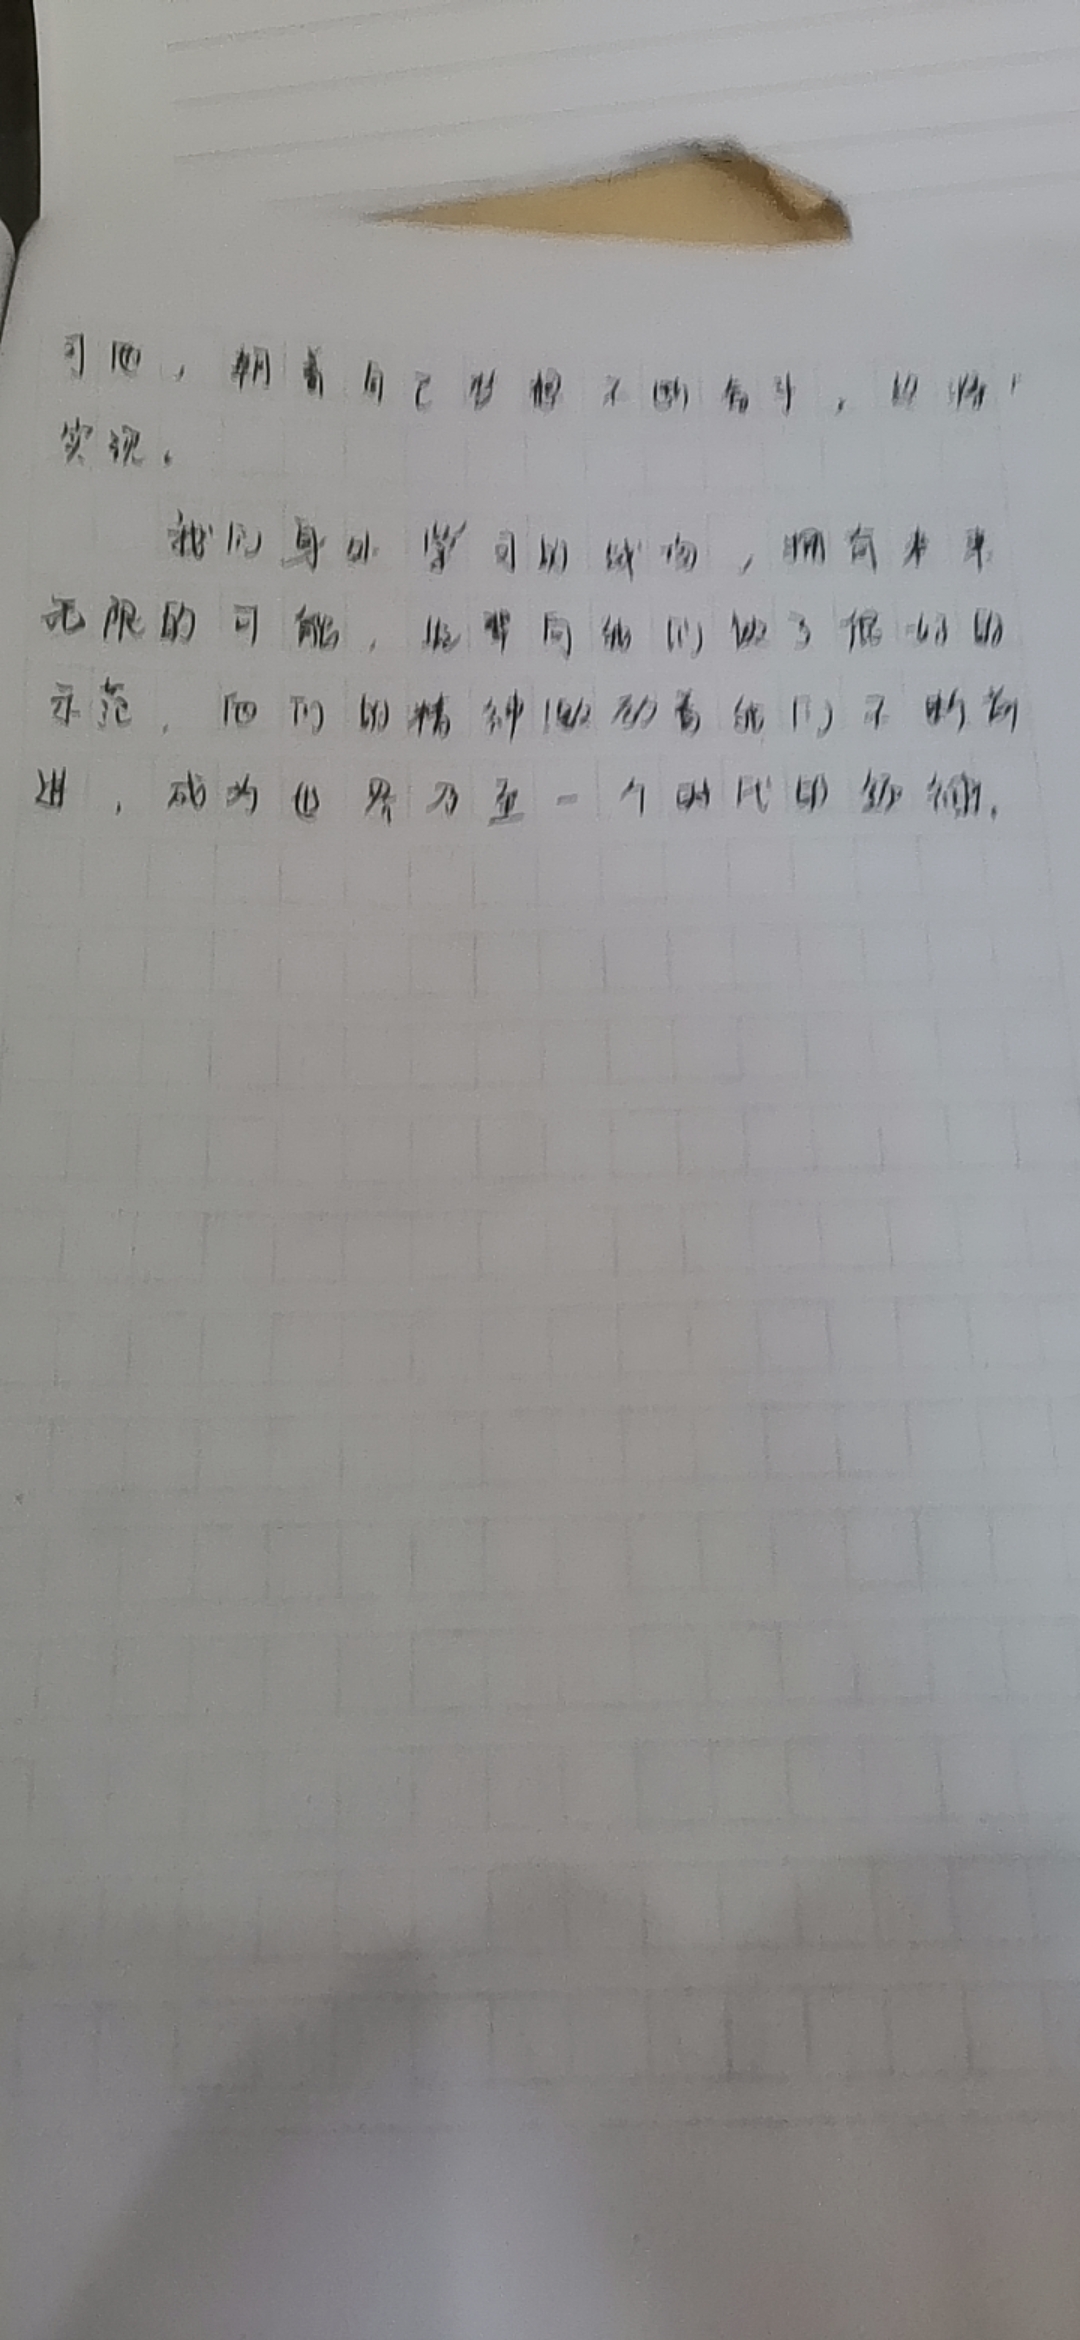 可他，朝着自己梦想不断奋斗，终将
实现。
我们身处学习的，拥有未来
无限的可能，同给们做了很好的
示范，他们的精神激励着我们不断前
进，成为世界乃至一个时代的